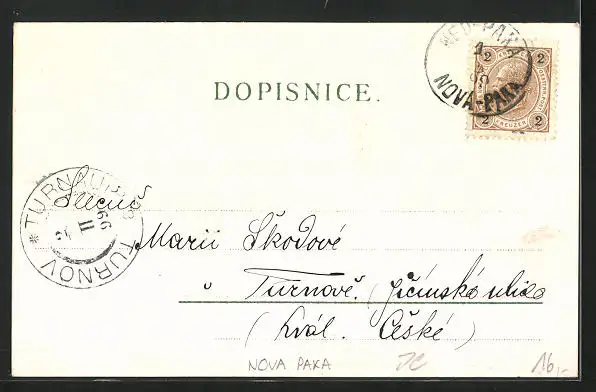 NEU-PAKA
2 2
NOVA-PAKA
2 KREUZER 2
DOPISNICE.
TURNAU
99
II
TURNOV
Slečně
Marii Škodové
v Turnově. (Jičínská ulice
(Král. České)
NOVA PAKA
16,-